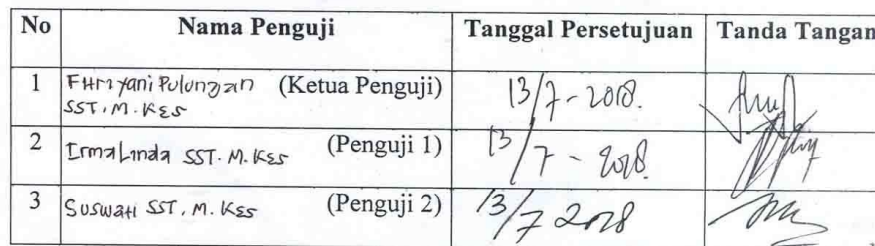 No Nama Penguji Tanggal Persetujuan Tanda Tangan
1 Fitriyani Pulungan (Ketua Penguji) 13/7-2018.
SST, M. Kes
2 Irma Linda SST. M. Kes (Penguji 1) 13/7-2018
3 Suswati SST, M. Kes (Penguji 2) 13/7 2018